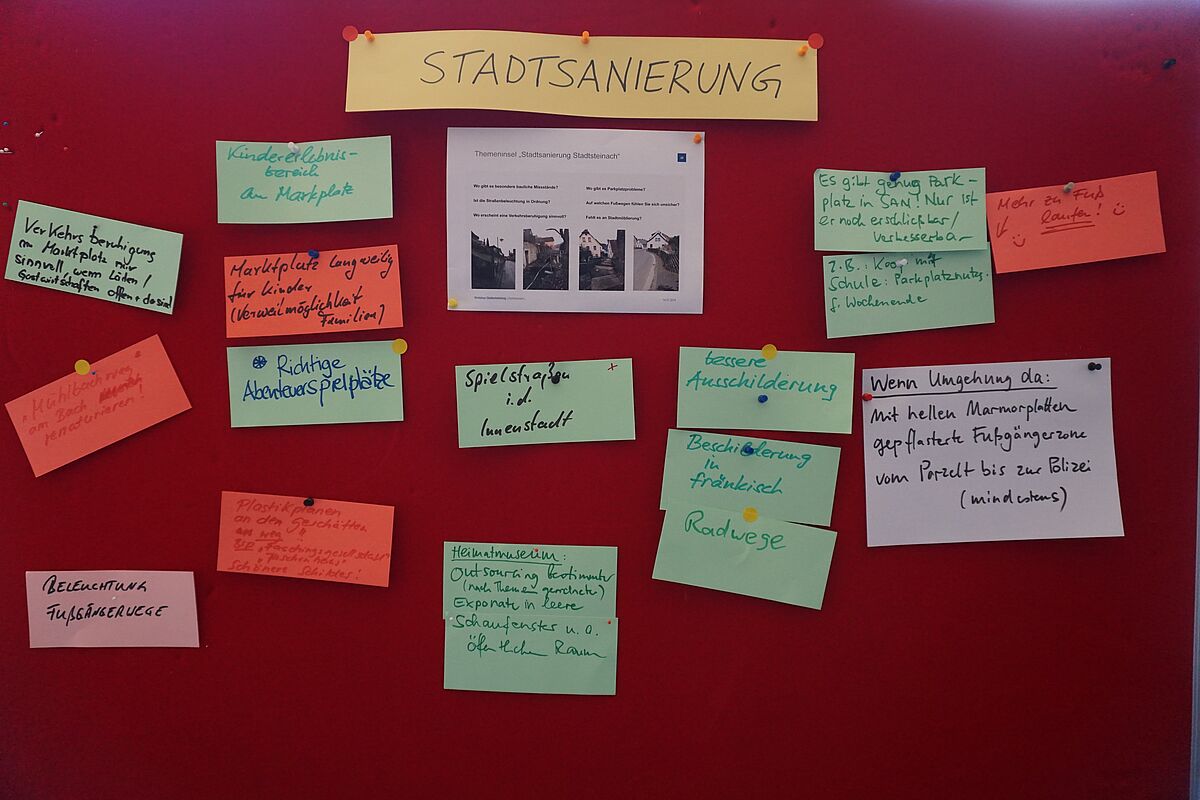 STADTSANIERUNG
Kindererlebnis-
bereich
am Marktplatz
Themeninsel „Stadtsanierung Stadtsteinach"
Wo gibt es besondere bauliche Missstände?
Ist die Straßenbeleuchtung in Ordnung?
Wo erscheint eine Verkehrsberuhigung sinnvoll?
Wo gibt es Parkplatzprobleme?
Auf welchen Fußwegen fühlen Sie sich unsicher?
Fehlt es an Stadtmöblierung?
Es gibt genug Park-
platz in SAN! Nur ist
er noch erschließbar/
verbesserbar
Mehr zu Fuß
laufen!
z.B.: Koop mit
Schule: Parkplatznutz.
f. Wochenende
Verkehrsberuhigung
am Marktplatz nur
sinnvoll wenn Läden/
Gastwirtschaften offen + da sind
Marktplatz langweilig
für Kinder
(Verweilmöglichkeit
Familien)
"Mühlbachweg"
am Bach
renaturieren!
Richtige
Abenteuerspielplätze
Spielstraßen
i.d.
Innenstadt
bessere
Ausschilderung
Beschilderung
in
fränkisch
Radwege
Wenn Umgehung da:
Mit hellen Marmorplatten
gepflasterte Fußgängerzone
vom Porzelt bis zur Polizei
(mindestens)
Plastikplanen
an den Geschäften
"Faschingsgesellschaft"
Schönere Schilder!
Heimatmuseum:
Outsourcing bestimmter
(nach Themen geordneter)
Exponate in leere
Schaufenster u. a.
öffentlichen Raum
BELEUCHTUNG
FUßGÄNGERWEGE